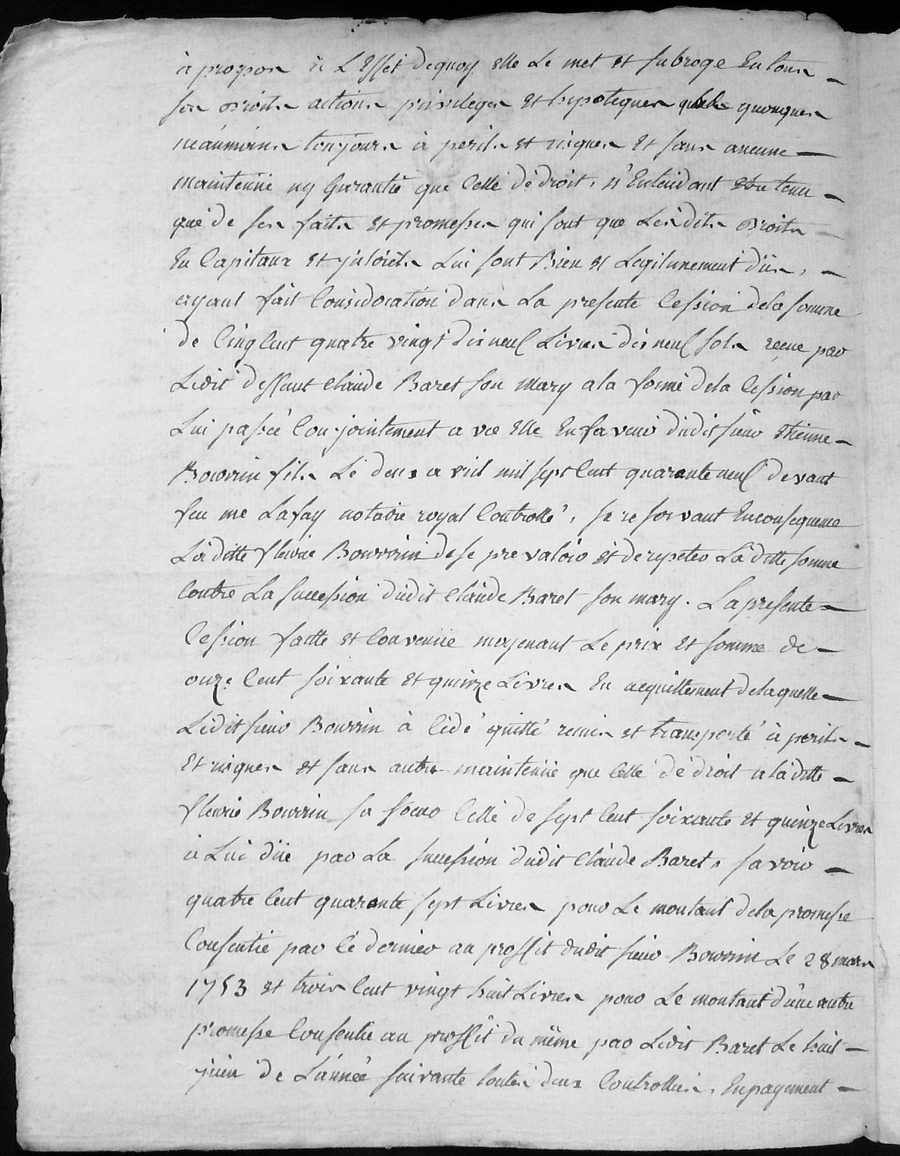 à propos à L'Effet dequoy elle Le met et subroge En tous
ses droits actions privileges et hypoteques quels quonques
néanmoins toujours à perils et risques et sans aucune
maintenüe ny Garantie que Celle dé droit, n'Entendant être tenu
que dé ses faits et promesses qui sont que Lesdits droits
En Capitaux et jnteréts Lui sont Bien et Legitimement düs,
ayant fait Consideration dans La presente Cession dela somme
de Cinq Cent quatre vingt dix neuf Livres dix neuf sols reçue par
Ledit deffunt Claude Baret son mary a la forme dela Cession par
Lui passée Conjointement avec Elle En faveur dudit sieur Etienne
Bowrin fils Le deux avril mil sept Cent quarante neuf devant
feu me Lafay notaire royal Controllé, se reservant En consequence
Laditte fleurie Bowrrin de se prevaloir et de repeter Laditte somme
Contre La succession dudit Claude Baret son mary. La presente
Cession faitte et Convenüe moyenant Le prix et somme de
onze Cent soixante et quinze Livres En acquittement delaquelle
Ledit sieur Bowrin à Cédé quitté remis et transporté à perils
Et risques et sans autre maintenüe que Celle dé droit a laditte
fleurie Bowrin sa soeur Celle de sept Cent soixante et quinze Livres
à Lui düe par La succession dudit Claude Baret, savoir
quatre Cent quarante sept Livres pour Le montant dela promesse
Consentie par Cé dernier au proffit dudit sieur Bowrin Le 28 mars
1753 et trois Cent vingt huit Livres pour Le montant d'une autre
promesse Consentie au proffit du même par Ledit Baret Le huit
juin de L'année suivante toutes deux Controllées, En payement